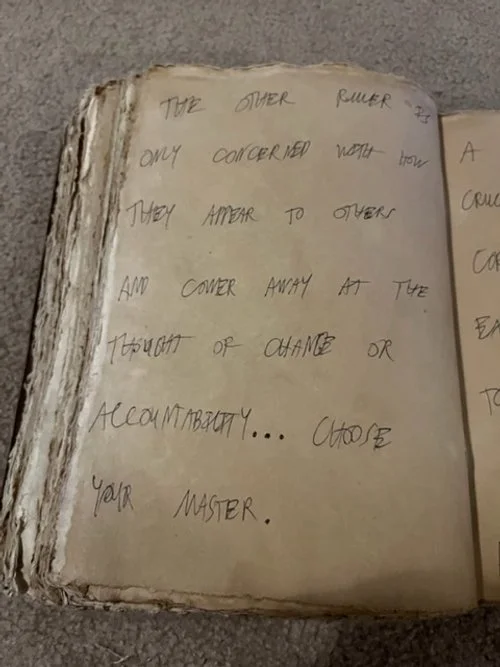 THE OTHER RULER IS
ONLY CONCERNED WITH HOW
THEY APPEAR TO OTHERS
AND COWER AWAY AT THE
THOUGHT OF CHANGE OR
ACCOUNTABILITY... CHOOSE
YOUR MASTER.
A
TO